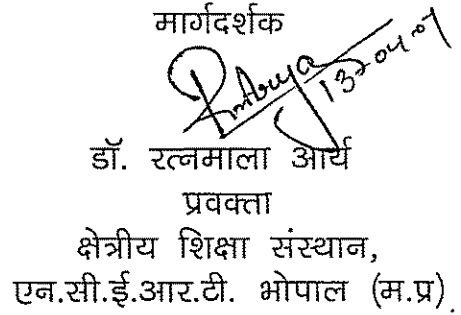 मार्गदर्शक
13-04-07
डॉ. रत्नमाला आर्य
प्रवक्ता
क्षेत्रीय शिक्षा संस्थान,
एन.सी.ई.आर.टी. भोपाल (म.प्र).